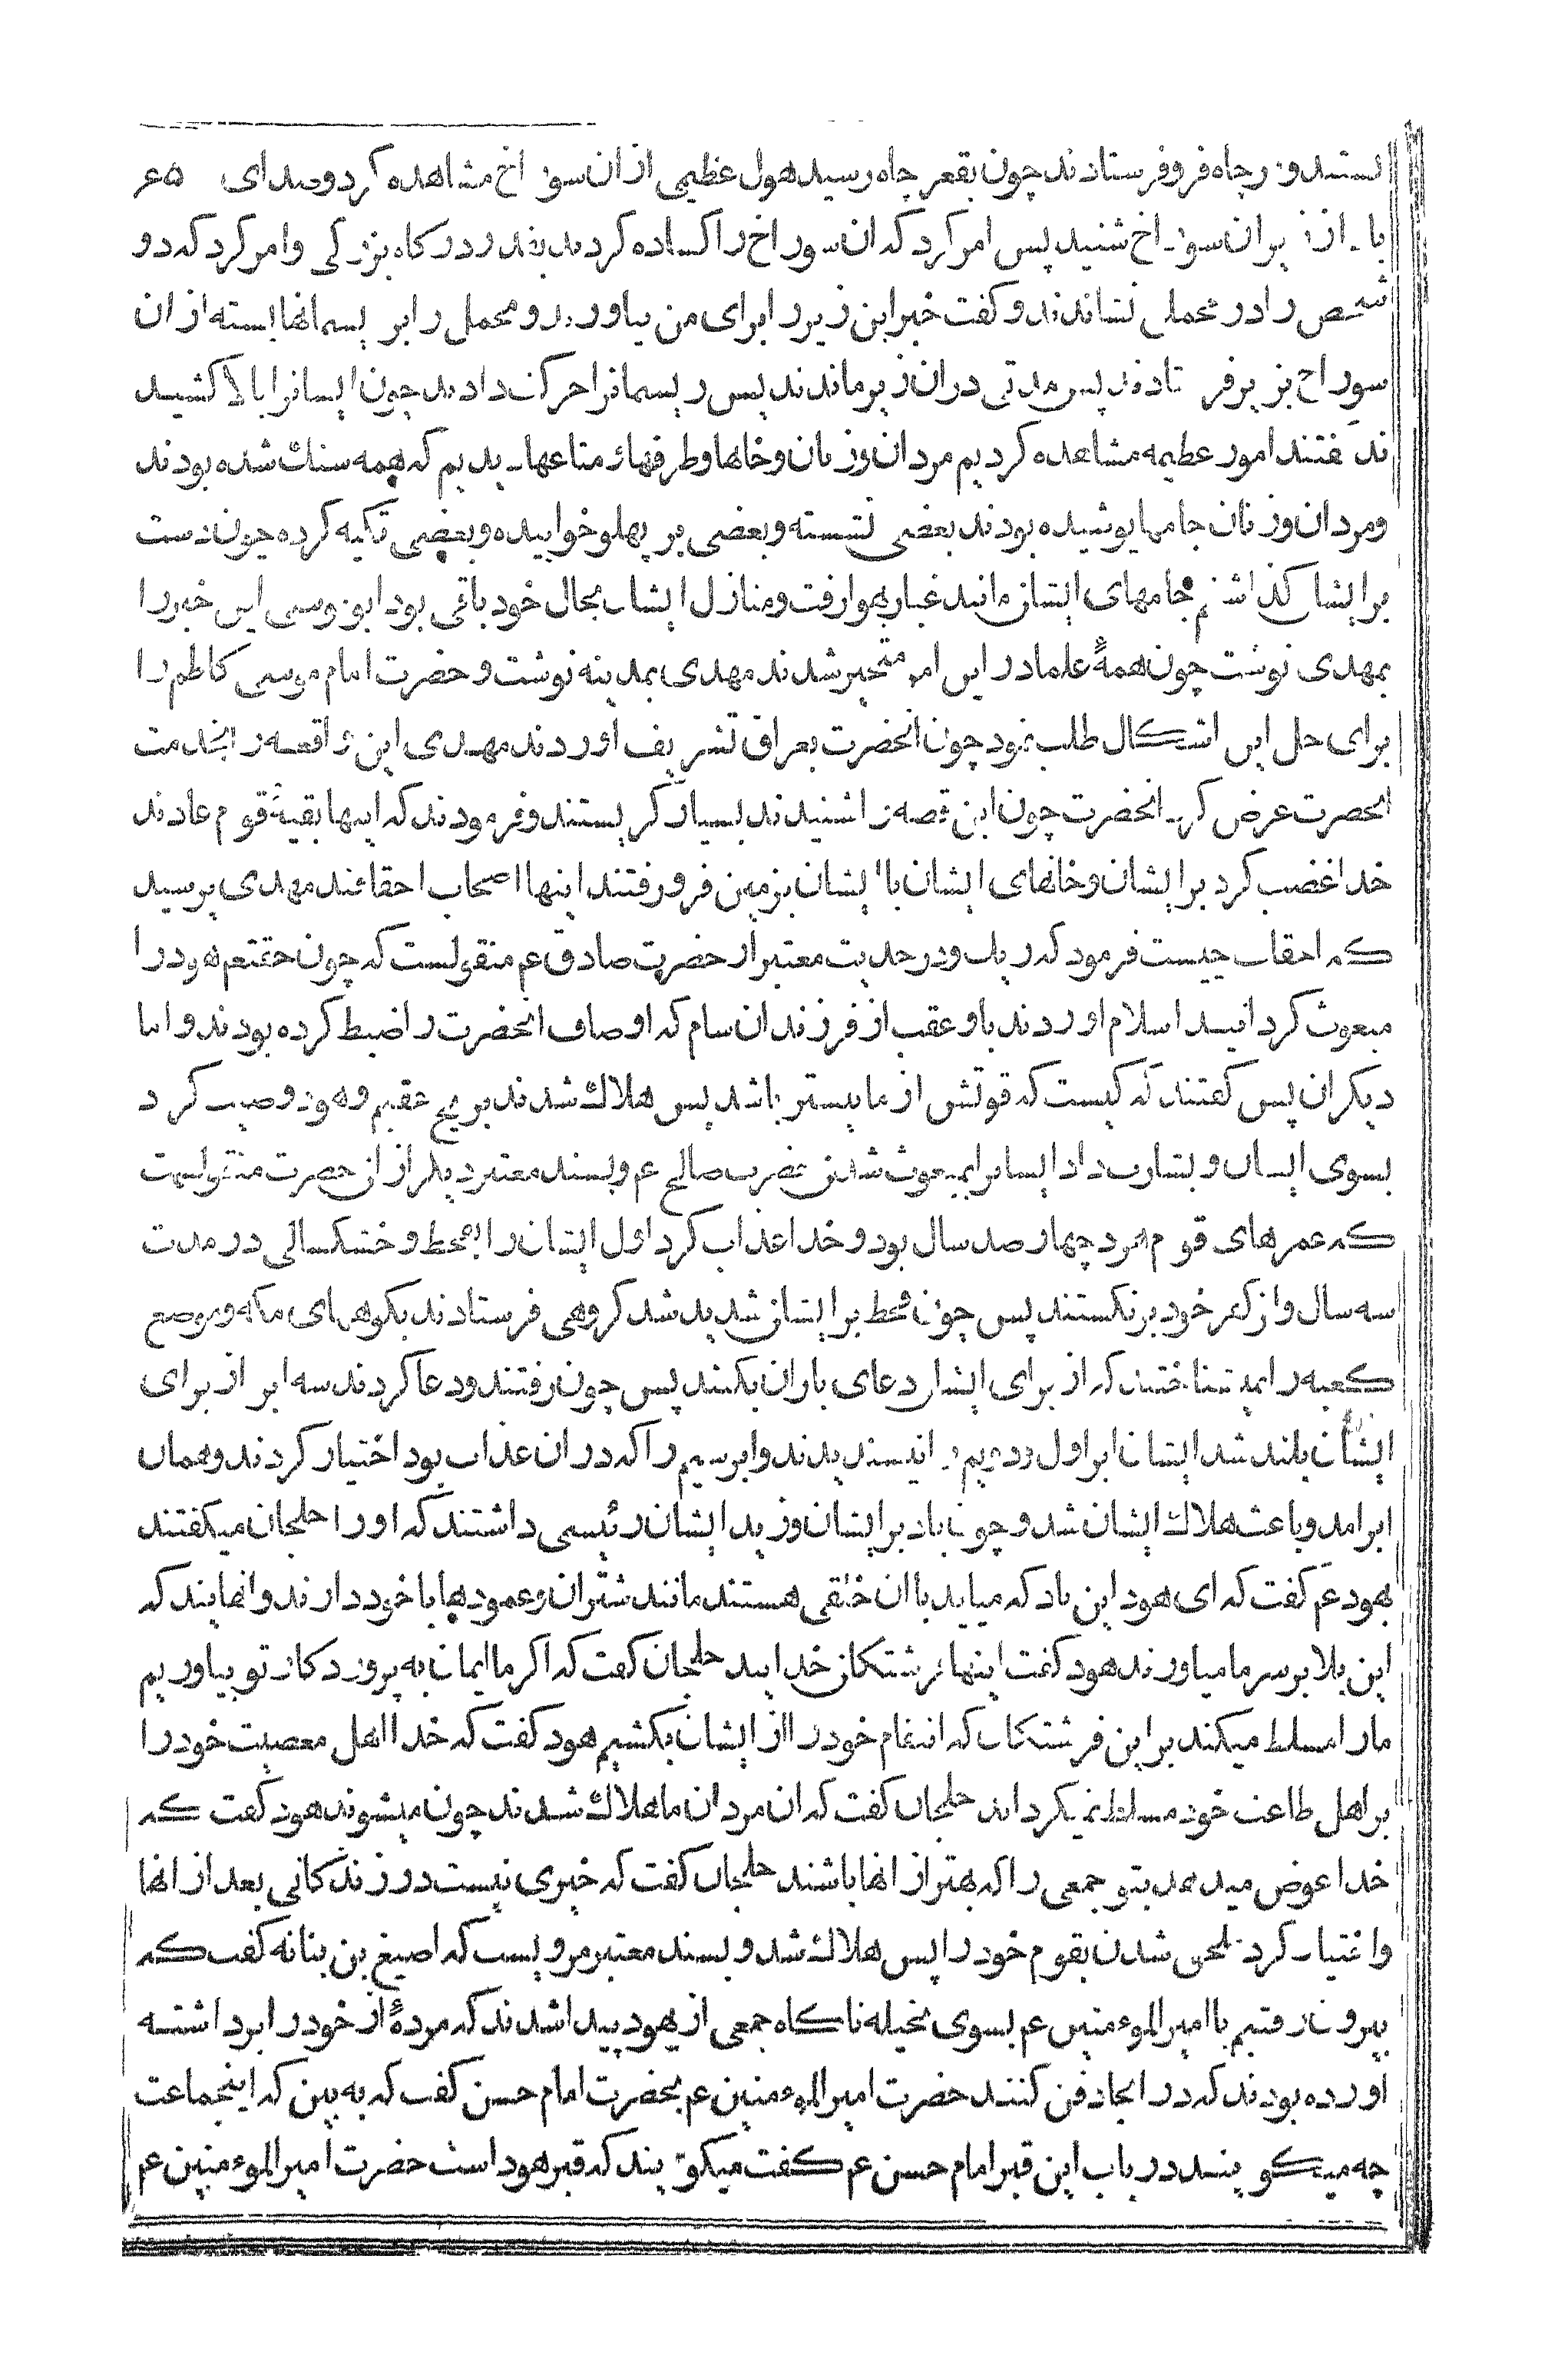 نستند و در چاه فرو فرستادند چون بقعر چاه رسید هول عظیمی از ان سوراخ مشاهده کرد و صدای ۶۵
باد از زیر ان سوراخ شنید پس امر کرد که ان سوراخ را کشاده کردند بقدر درکاه بزرکی و امر کرد که دو
شخص را در محملی نشاندند و کفت خبر این زیر را برای من بیاورید و محمل را بر یسمانها بسته از ان
سوراخ بزیر فرستادند پس مدتی در ان زیر ماندند پس ریسمانرا حرکت دادند چون ایشانرا بالا کشید
ند کفتند امور عظیمه مشاهده کردیم مردان و زنان و خانها و ظرفها و متاعها دیدیم که همه سنك شده بودند
و مردان و زنان جامها پوشیده بودند بعضی نشسته و بعضی بر پهلو خوابیده و بعضی تکیه کرده چون دست
بر ایشان کذاشتیم جامهای ایشان مانند غبار بهوا رفت و منازل ایشان بحال خود باقی بود ابو موسی این خبر را
بمهدی نوشت چون همهٔ علما در این امر متحیر شدند مهدی بمدینه نوشت و حضرت امام موسی کاظم را
برای حل این اشکال طلب نمود چون انحضرت بعراق تشریف اوردند مهدی این واقعه را بخدمت
انحضرت عرض کرد انحضرت چون این قصه را شنیدند بسیار کریستند و فرمودند که اینها بقیهٔ قوم عادند
خدا غضب کرد بر ایشان و خانهای ایشان با ایشان بزمین فرو رفتند اینها اصحاب احقافند مهدی پرسید
که احقاف چیست فرمود که ریك و در حدیث معتبر از حضرت صادق عم منقولست که چون حقتعم هود را
مبعوث کردانید اسلام اوردند باو عقب از فرزندان سام که اوصاف انحضرت را ضبط کرده بودند و اما
دیکران پس کفتند که کیست که قوتش از ما بیشتر باشد پس هلاك شدند بریح عقیم و هود وصیت کرد
بسوی ایشان و بشارت داد ایشانرا بمبعوث شدن حضرت صالح عم و بسند معتبر دیکر از ان حضرت منقولست
که عمرهای قوم هود چهارصد سال بود و خدا عذاب کرد اول ایشان را بقحط و خشکسالی در مدت
سه سال و از کفر خود برنکشتند پس چون قحط بر ایشان شدید شد کروهی فرستادند بکوهای مکه و موضع
کعبه را نمیشناختند که از برای ایشان دعای باران بکنند پس چون رفتند و دعا کردند سه ابر از برای
ایشان بلند شد ایشان ابر اول و دویم را نپسندیدند و ابر سیم را که در ان عذاب بود اختیار کردند و همان
ابر امد و باعث هلاك ایشان شد و چون باد بر ایشان وزید ایشان رئیسی داشتند که او را خلجان میکفتند
بهود عم کفت که ای هود این باد که میاید با ان خلقی هستند مانند شتران و عمودها با خود دارند و انهایند که
این بلا بر سر ما میاورند هود کفت اینها فرشتکان خدایند خلجان کفت که اکر ما ایمان به پروردکار تو بیاوریم
ما را مسلط میکند بر این فرشتکان که انتقام خود را از ایشان بکشیم هود کفت که خدا اهل معصیت خود را
بر اهل طاعت خود مسلط نمیکرداند خلجان کفت که ان مردان ما هلاك شدند چون میشوند هود کفت که
خدا عوض میدهد بتو جمعی را که بهتر از انها باشند خلجان کفت که خیری نیست در زندکانی بعد از انها
و اختیار کرد ملحق شدن بقوم خود را پس هلاك شد و بسند معتبر مرویست که اصبغ بن بنانه کفت که
بیرون رفتیم با امیرالموءمنین عم بسوی نخیله ناکاه جمعی از یهود پیدا شدند که مردهٔ از خود را برداشته
اورده بودند که در انجا دفن کنند حضرت امیرالموءمنین عم بحضرت امام حسن کفت که به بین که اینجماعت
چه میکویند در باب این قبر امام حسن عم کفت میکویند که قبر هود است حضرت امیرالموءمنین عم